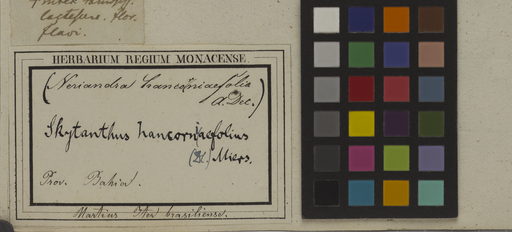 lactescens. flor.
flavi.
HERBARIUM REGIUM MONACENSE.
(Neriandra hancorniaefolia
A.Dec.)
Skytanthus hancorniaefolius
Miers.
Prov. Bahia.
Martius Iter brasiliense.